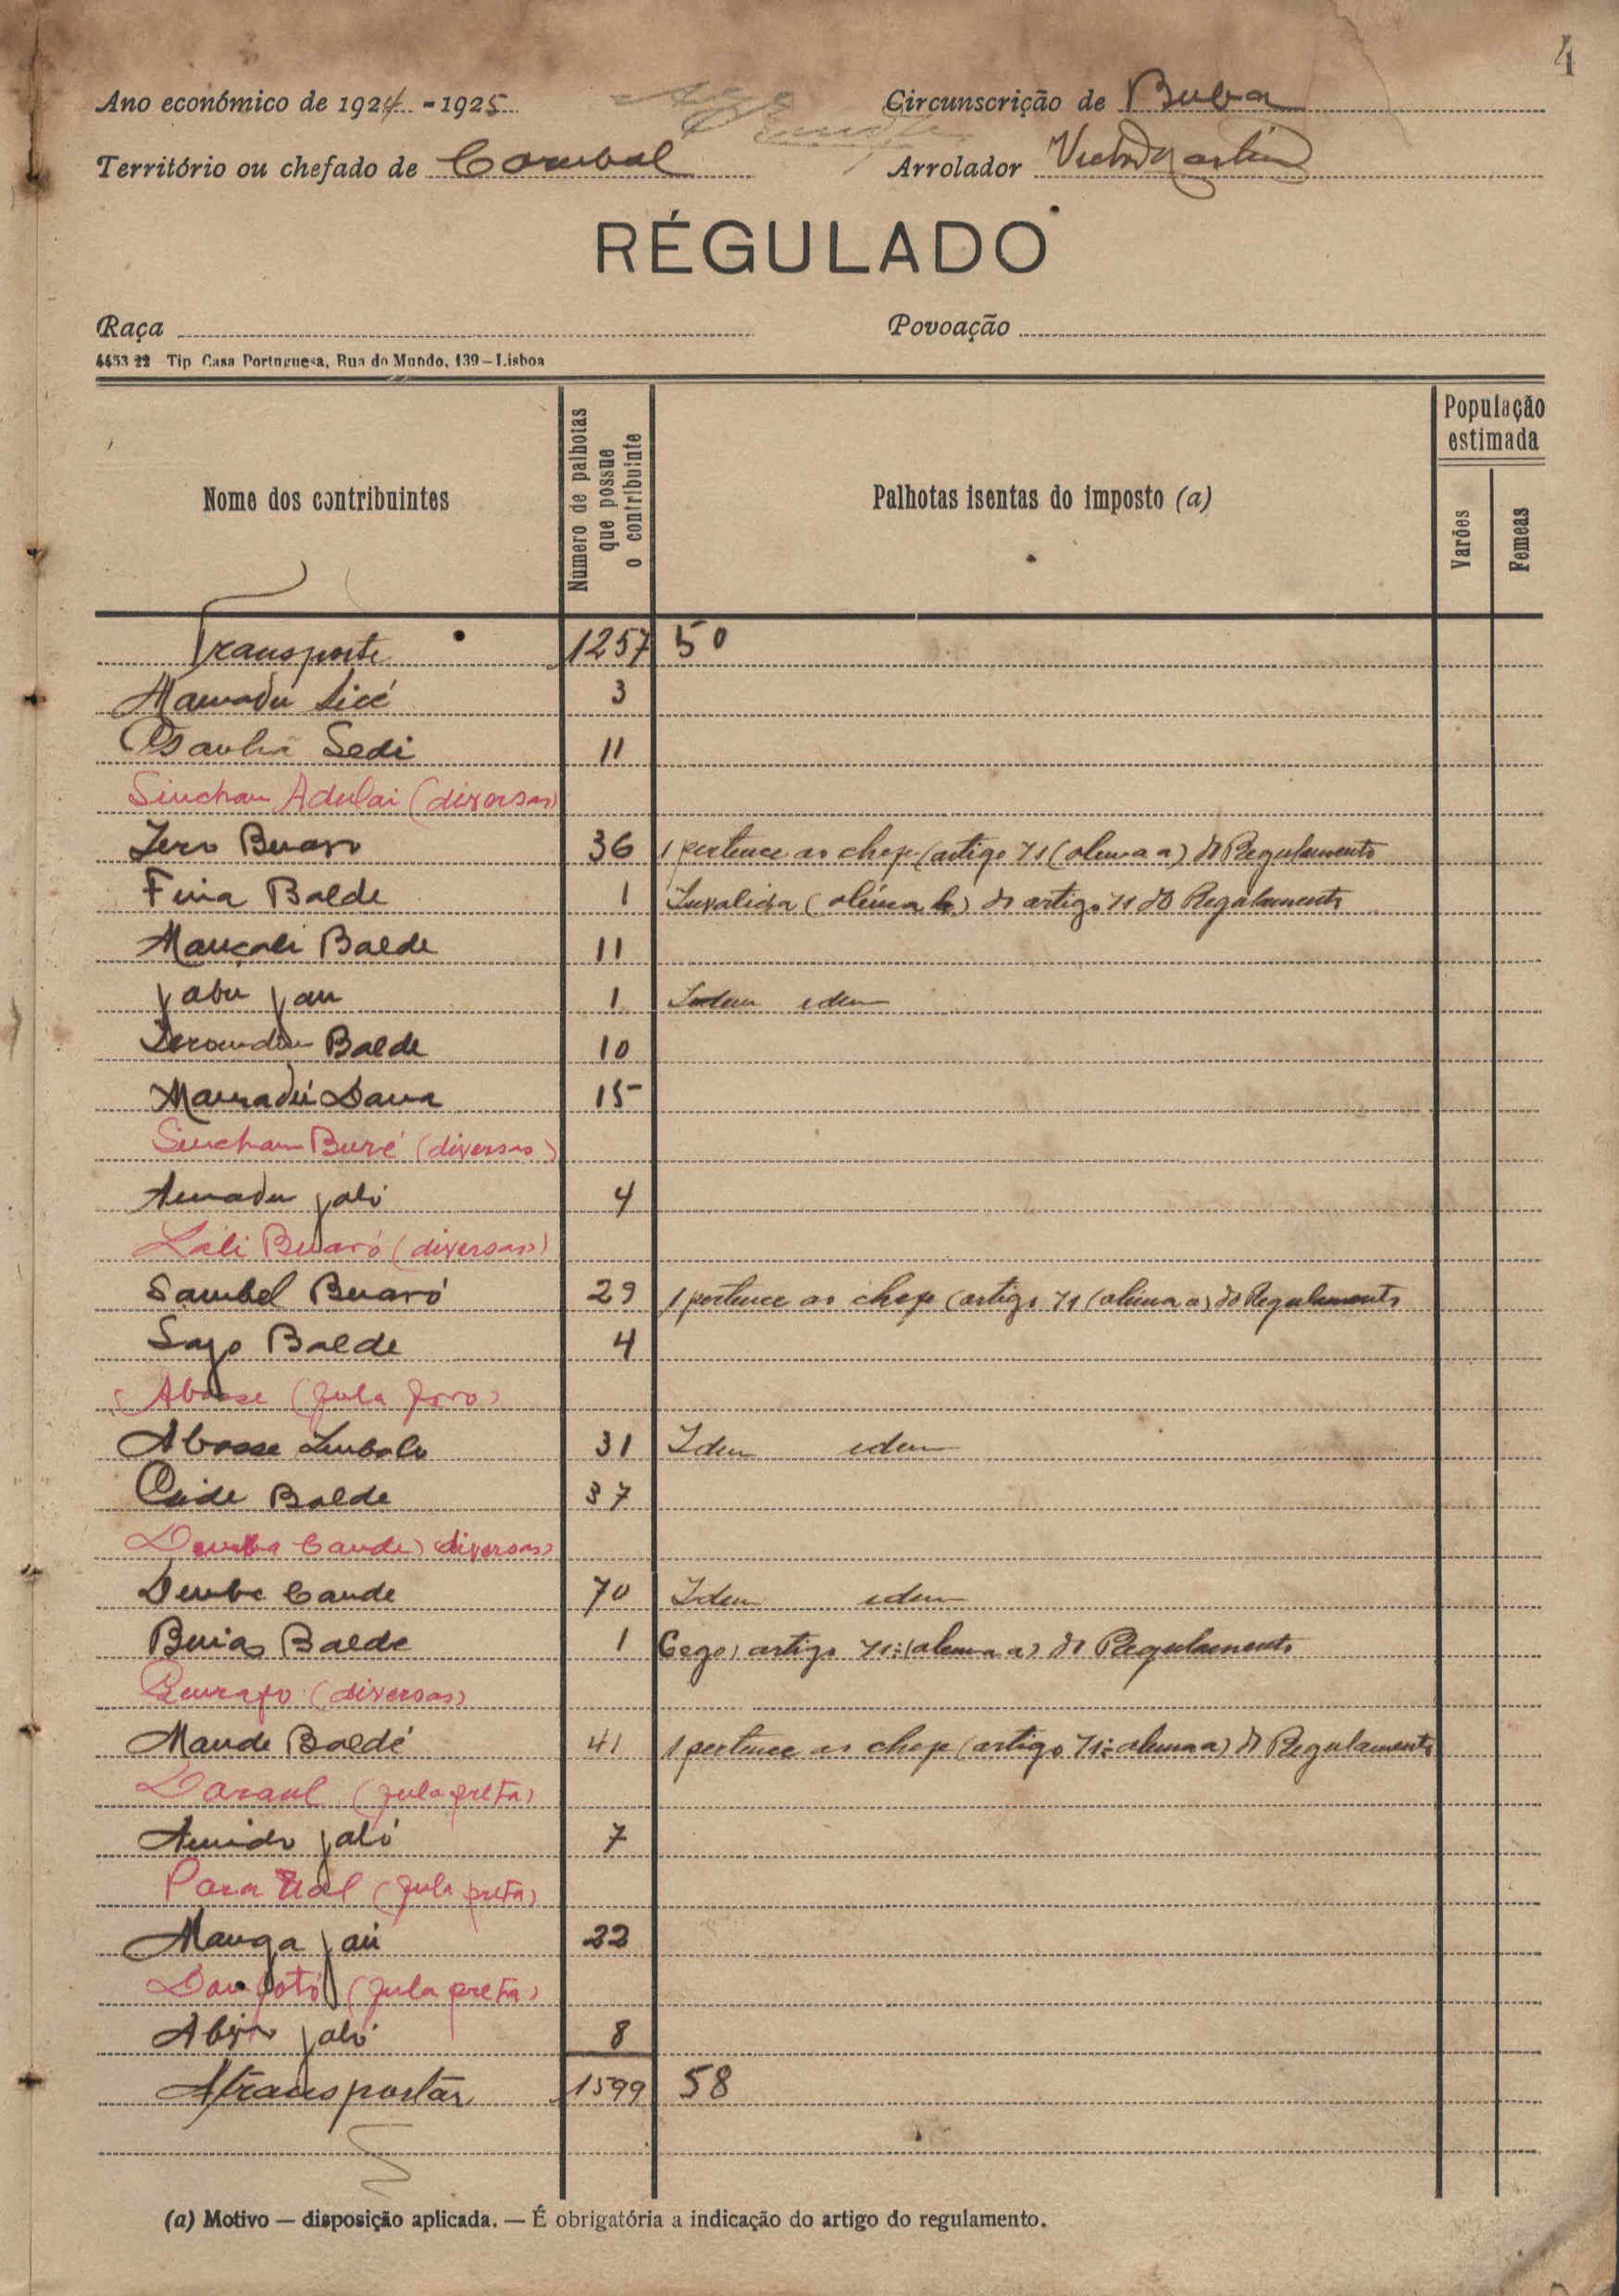 4
Ano económico de 1924 - 1925 Circunscrição de Buba
Território ou chefado de Corubal Arrolador Victor Martins
RÉGULADO
Raça Povoação
4453 22 Tip Casa Portuguesa, Rua do Mundo, 139—Lisboa
Nome dos contribuintes Numero de palhotas que possue o contribuinte Palhotas isentas do imposto (a) População estimada Varões Femeas
Transporte 1257 50
Mamadú Sicé 3
Sedi 11
Sinchan Adulai (diversas)
Iero Buaro 36 1 pertence ao chefe (artigo 71 (alinea a) do Regulamento
Balde 1 Invalida (alinea b) do artigo 71 do Regulamento
Mançali Balde 11
Jabu Jau 1 Idem idem
Balde 10
Mamadú Dana 15
Sinchan Buré (diversas)
Amadu Jaló 4
Lali Buaró (diversas)
Sambel Buaró 29 1 pertence ao chefe (artigo 71 (alinea a) do Regulamento
Balde 4
Abasse (fula foro)
Abasse 31 Idem idem
Balde 37
Demba Cande) diversas)
Demba Cande 70 Idem idem
Balde 1 Cego) artigo 71: (alinea a) do Regulamento
(diversas)
Mande Baldé 41 1 pertence ao chefe (artigo 71: alinea a) do Regulamento
Daraul (fula preta)
Amido Jaló 7
Para Ual (fula preta)
Manga Jaú 22
(fula preta)
Jaló 8
A transportar 1599 58
(a) Motivo — disposição aplicada. — É obrigatória a indicação do artigo do regulamento.